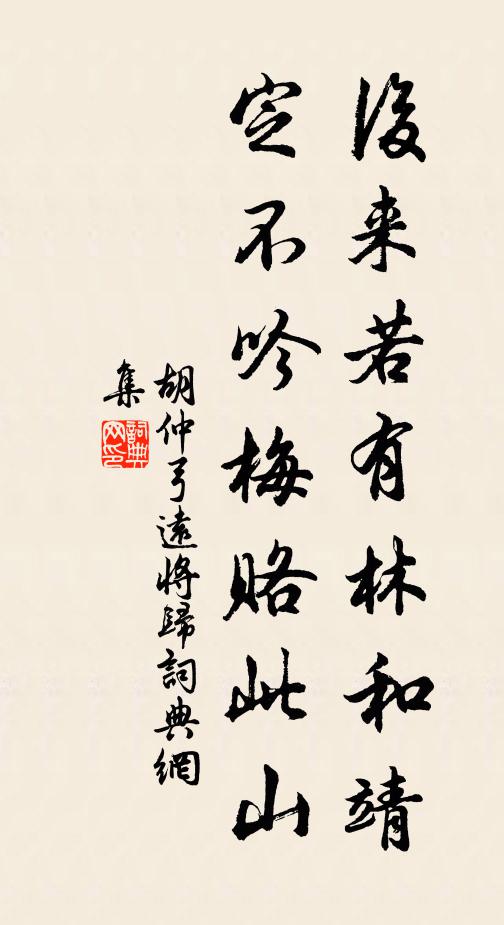 後来若有林和靖
定不吟梅賂此山
胡仲弓遠將歸詞典網
集
詞典
网印